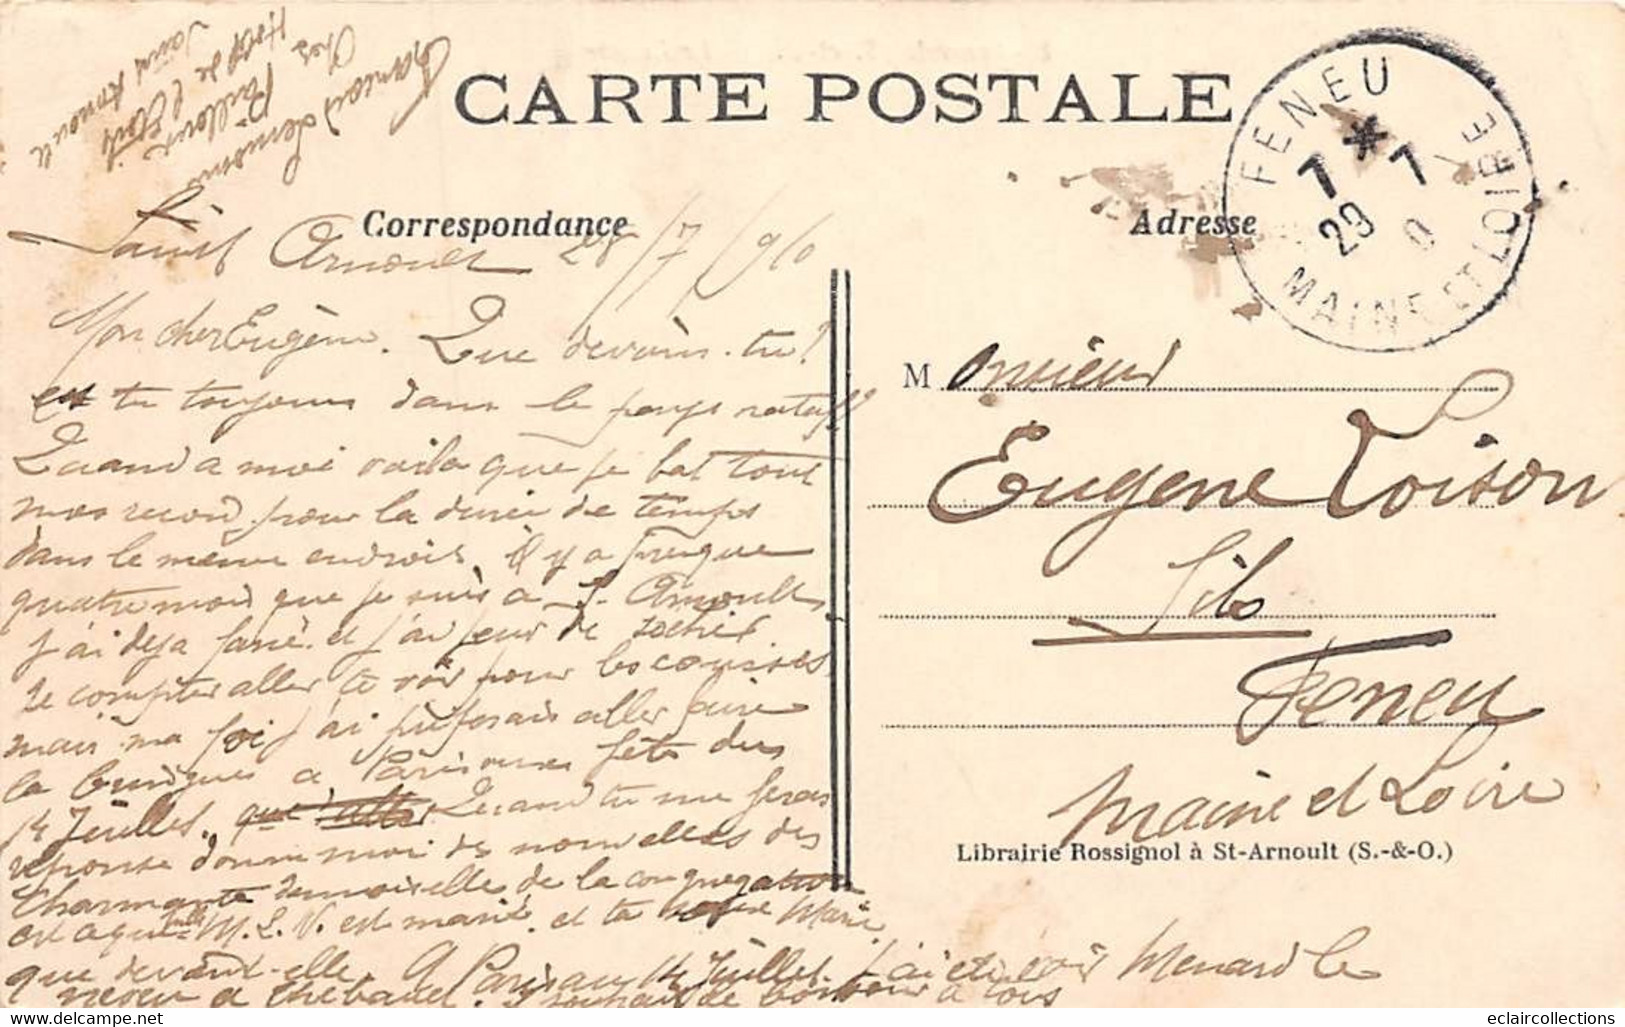 CARTE POSTALE
Correspondance
Adresse
FENEU
7 * 7
29 0
MAINE ET LOIRE
Chez
Paillout
Hotel de l'Etoile
Saint Arnoult
Saint Arnoult 28/7/910
Mon cher Eugène. Que devain-tu?
es tu toujours dans le pays natal?
Quand a moi voila que je bat tout
mes record pour la durée de temps
dans le meme endroit. il y a presque
quatre mois que je suis a S. Arnoult.
j'ai deja farié et j'ai peur de
Je compter aller te voir pour les courses
mais ma foi j'ai préferais aller faire
la a Paris aux fête du
14 Juillet. Quand tu me feras
réponse donne moi des nouvelles des
Charmante demoiselle de la congregation
est a que Mlle M. L. V. est marié. et ta Marie
que devant-elle. A Paris au 14 Juillet. j'ai eté voir Menard le
neveu a Thebault. Je souhait de bonheur a tois
M onsieur
Eugene Loison
fils
Feneu
Maine et Loire
Librairie Rossignol à St-Arnoult (S.-&-O.)
eclaircollections.com